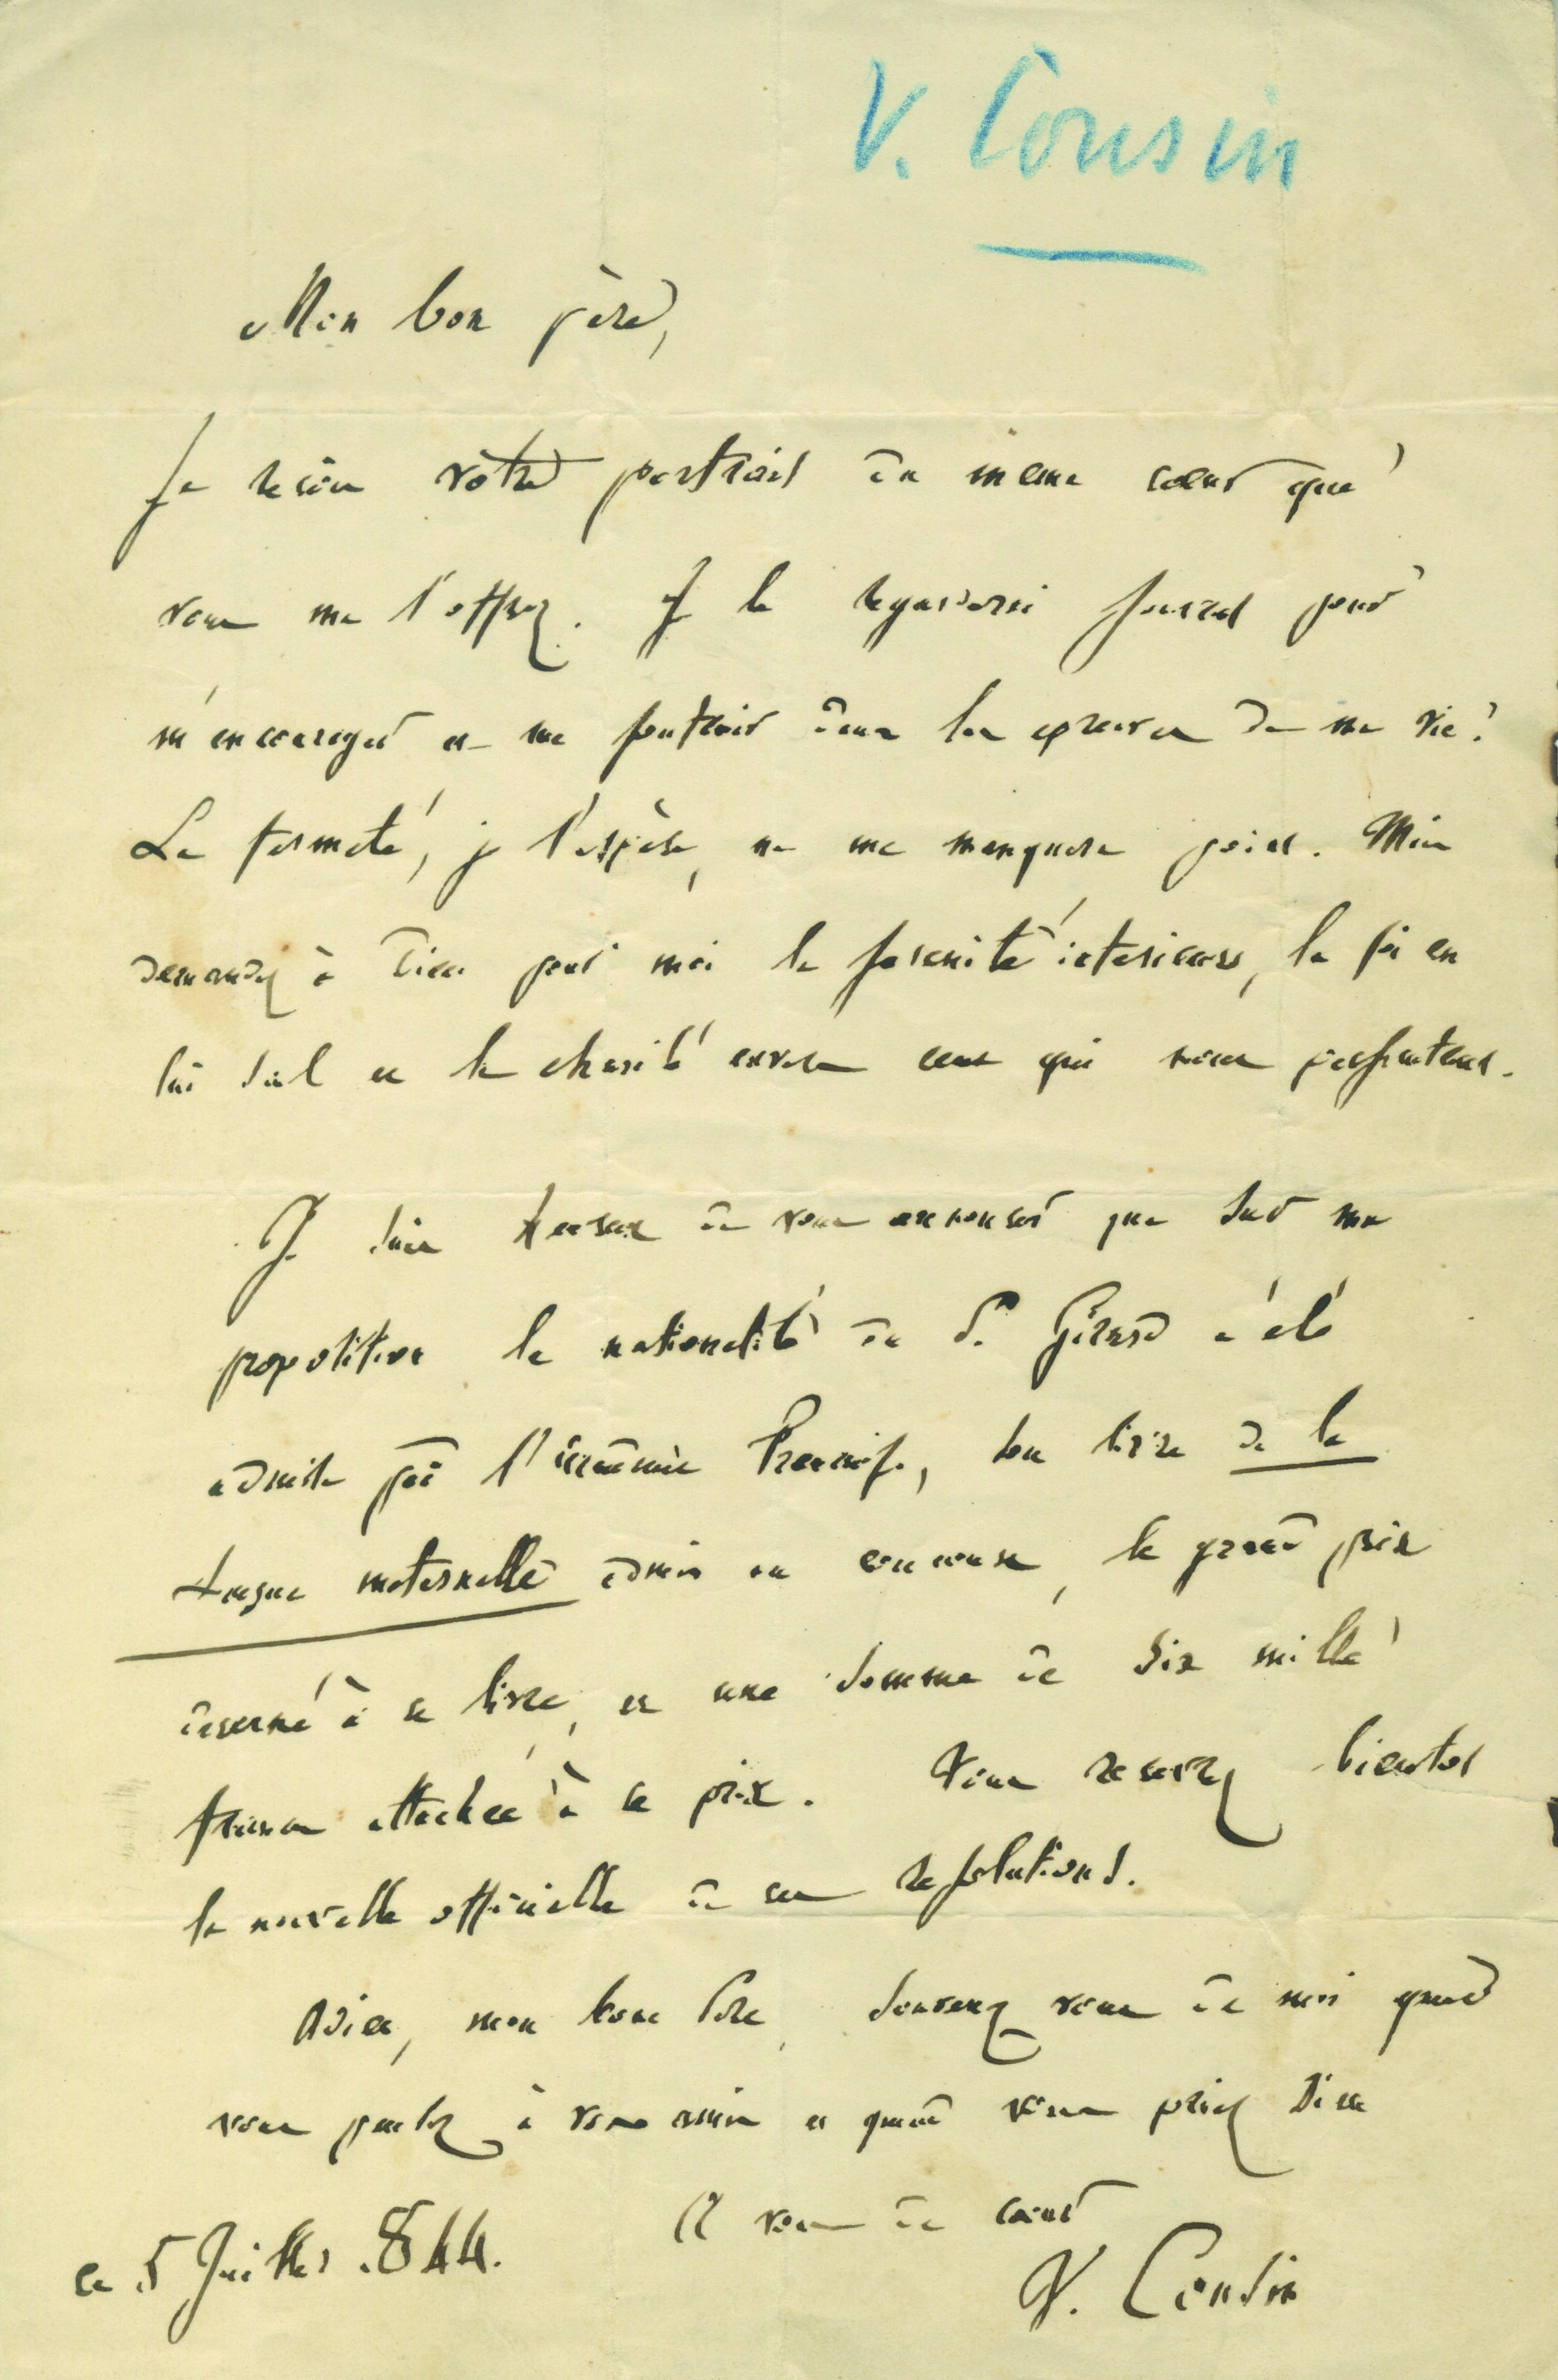 V. Cousin
Mon bon père,
Je reçois vôtre portrait du meme coeur que
vous me l'offrez. Je le regarderai souvent pour
m'encourager et me soutenir dans les epreuves de ma vie.
La fermeté, je l'espère, ne me manquera point. Mais
demandez à Dieu pour moi la serenité interieure, la foi en
lui seul et la charité envers ceux qui nous persecutent.
Je suis heureux de vous annoncer que sur ma
proposition la nationalité du P. Girard a été
admise par l'académie française, son livre de la
Langue maternelle admis au concours, le grand prix
decerné à ce livre, et une somme de six mille
francs attachée à ce prix. Vous recevrez bientot
la nouvelle officielle de ces resolutions.
Adieu, mon bon Père, souvenez vous de moi quand
vous parlez à vos amis et quand vous priez Dieu
A vous de coeur
ce 5 Juillet 1844.
V. Cousin